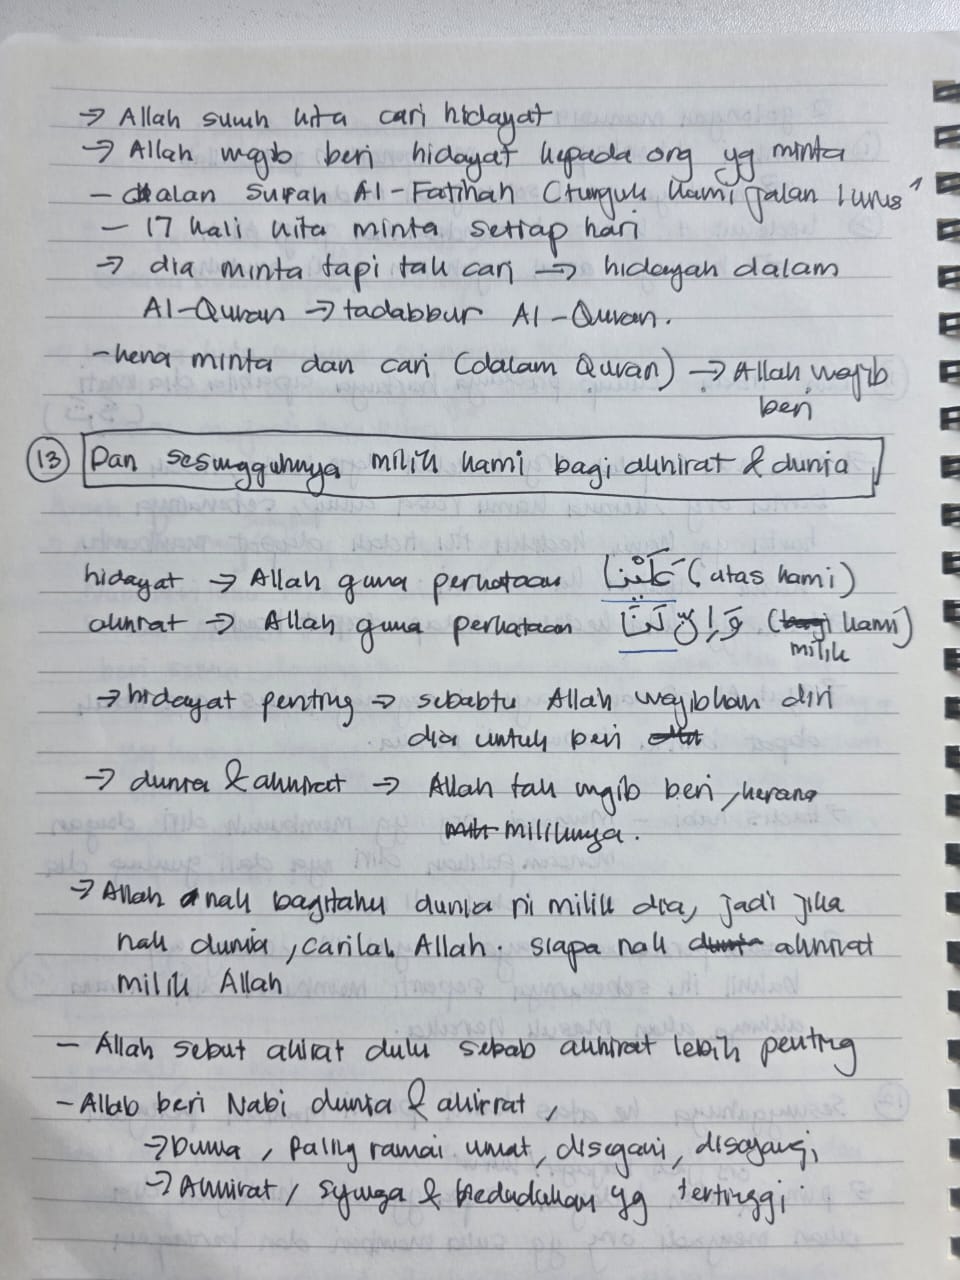 → Allah suruh kita cari hidayat
→ Allah wajib beri hidayat kepada org yg minta
- dalan surah Al-Fatihah (tunjuk kami jalan lurus"
- 17 kali kita minta setiap hari
→ dia minta tapi tak cari → hidayah dalam
Al-Quran → tadabbur Al-Quran.
- kena minta dan cari (dalam Quran) → Allah wajib
beri
13 Dan sesungguhnya milik kami bagi akhirat & dunia
hidayat → Allah guna perkataan عَلَيْنَا (atas kami)
akhirat → Allah guna perkataan وَإِنَّ لَنَا (bagi kami)
milik
→ hidayat penting → sebabtu Allah wajibkan diri
dia untuk beri
→ dunia & akhirat → Allah tak wajib beri, kerana
miliknya.
→ Allah nak bagitahu dunia ni milik dia, jadi jika
nak dunia, carilah Allah. siapa nak dunia akhirat
milik Allah
- Allah sebut akirat dulu sebab akhirat lebih penting
- Allah beri Nabi dunia & akirat,
→ Dunia, paling ramai umat, disegani, disayangi
→ Akhirat, syurga & kedudukan yg tertinggi